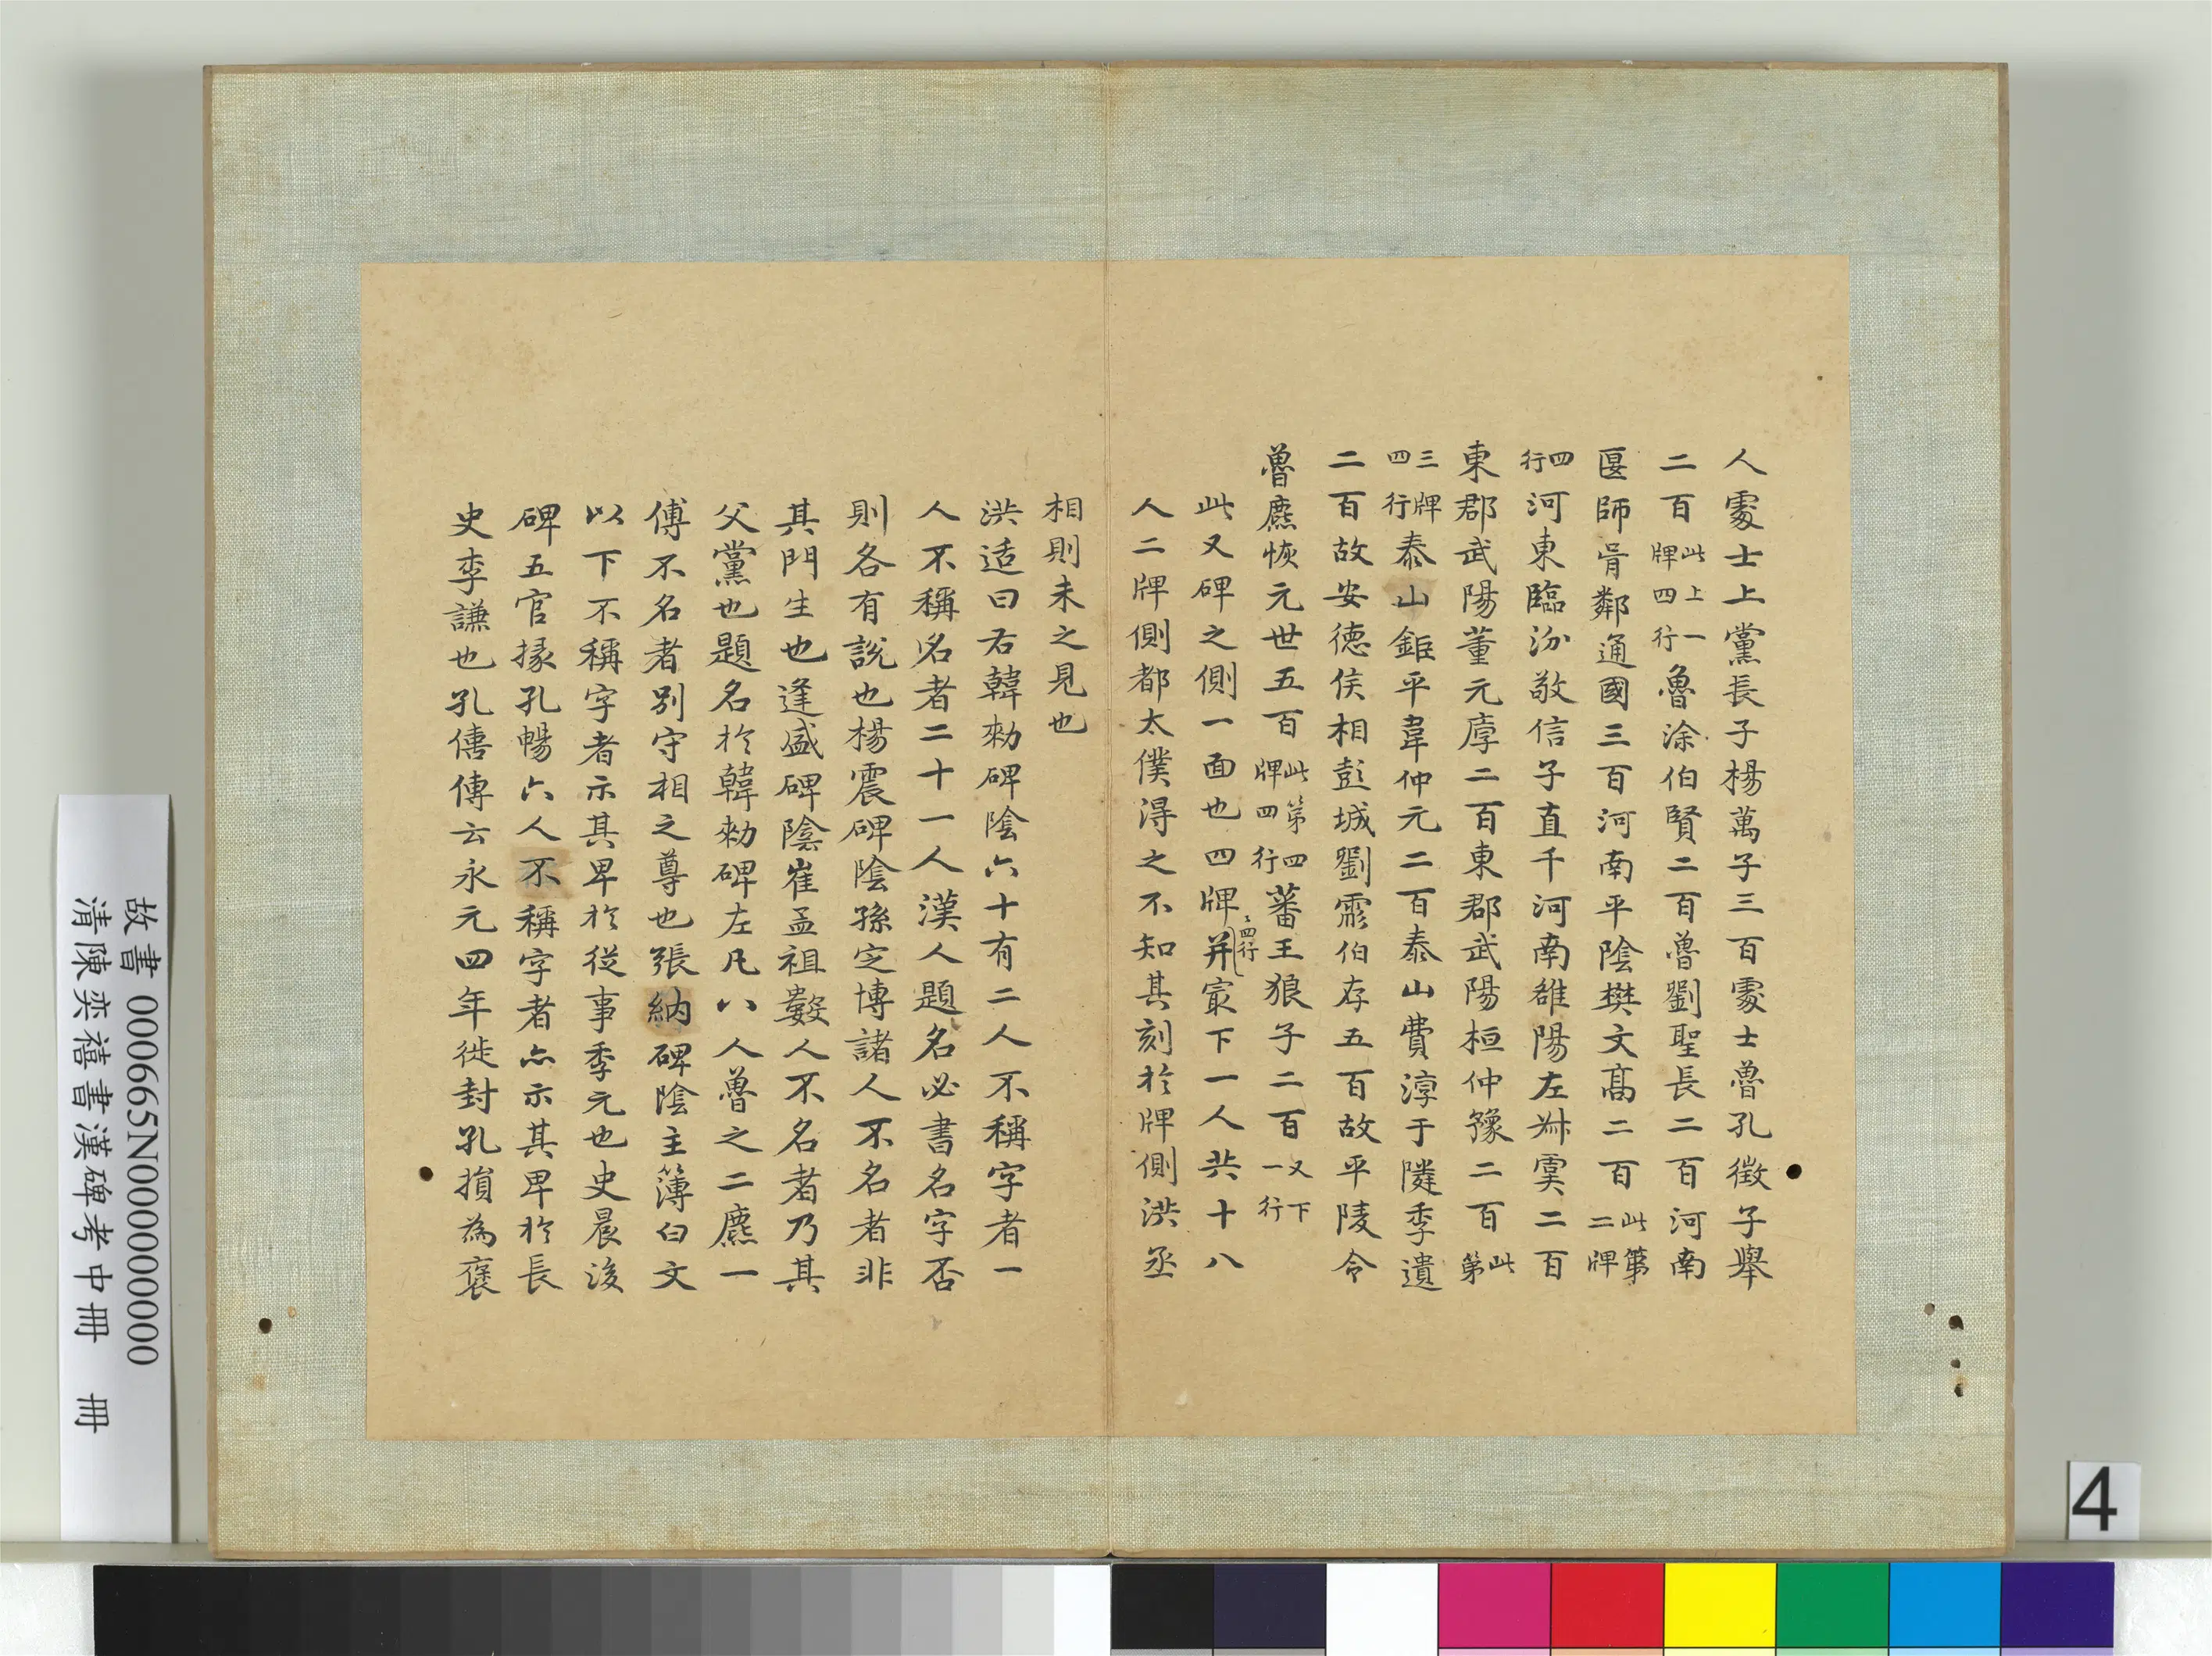 人處士上黨長子楊萬子三百處士魯孔徵子舉
二百此上一牌四行魯涂伯賢二百魯劉聖長二百河南
匽師胥鄰通國三百河南平陰樊文高二百此第二牌
四行河東臨汾敬信子直千河南雒陽左叔虞二百
東郡武陽董元厚二百東郡武陽桓仲豫二百此第
三牌四行泰山鉅平韋仲元二百泰山費淳于隣季遺
二百故安德侯相彭城劉彪伯存五百故平陵令
魯麃恢元世五百此第四牌四行蕃王狼子二百又下一行
此又碑之側一面也四牌牌四行并冣下一人共十八
人二牌側都太僕淂之不知其刻於牌側洪丞
相則未之見也
洪适曰右韓勑碑陰六十有二人不稱字者一
人不稱名者二十一人漢人題名必書名字否
則各有說也楊震碑陰孫定博諸人不名者非
其門生也逢盛碑陰崔孟祖數人不名者乃其
父黨也題名於韓勑碑左凡八人魯之二麃一
傅不名者別守相之尊也張納碑陰主簿白文
以下不稱字者示其卑於從事季元也史晨後
碑五官掾孔暢六人不稱字者亦示其卑於長
史李謙也孔僖傳云永元四年徙封孔損為褒
故書 000665N000000000
清陳奕禧書漢碑考中冊 冊
4